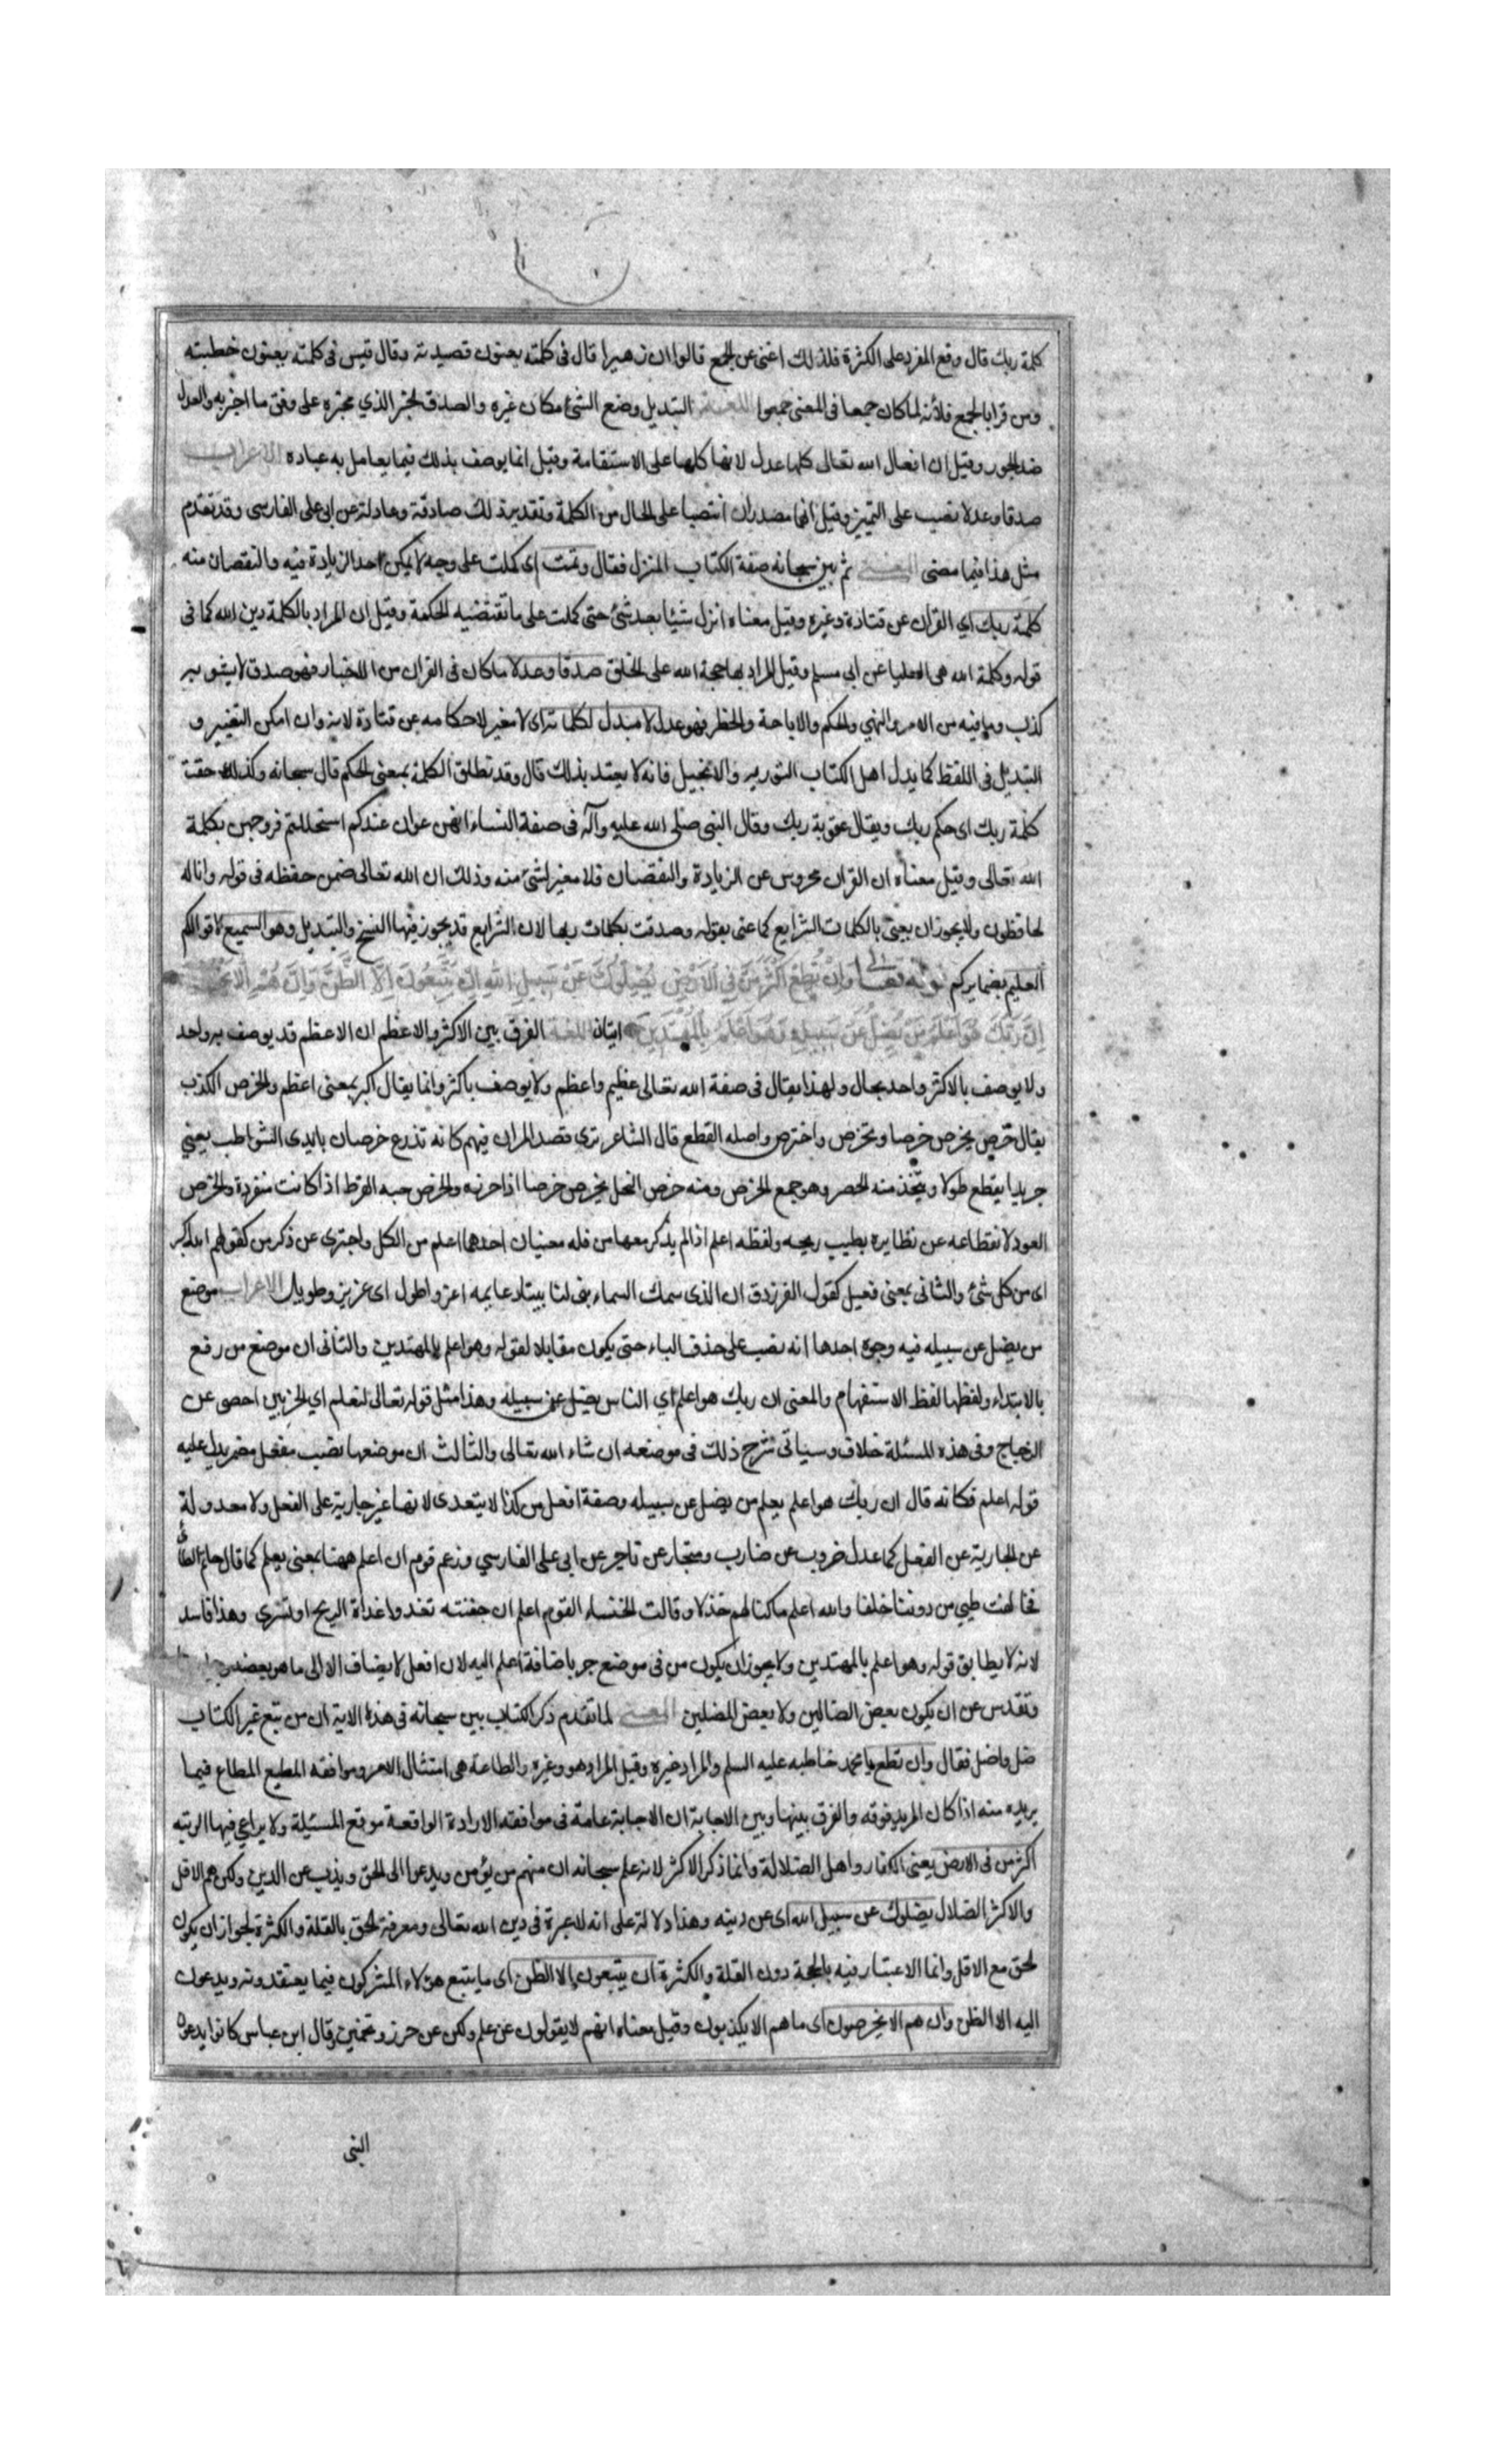 كلمة ربك قال وقع المفرد على الكثرة فلذلك اغنى عن الجمع قالوا ان زهيرا قال فى كلمته يعنون قصيدته وقال قيس فى كلمته يعنون خطبته
ومن قرا بالجمع فلأنه لما كان جمعا فى المعنى جمعوا اللغة التبديل وضع الشئ مكان غيره والصدق الخبر الذي مخبره على وفق ما اخبر به والعدل
ضد الجور وقيل ان افعال الله تعالى كلها عدل لانها كلها على الاستقامة وقيل انما يوصف بذلك فيما يعامل به عباده الاعراب
صدقا وعدلا نصب على التميز وقيل انهما مصدران انتصبا على الحال من الكلمة وتقديره لك صادقة وعادلة عن ابى على الفارسى وقد تقدم
مثل هذا فيما مضى المعنى ثم بين سبحانه صفة الكتاب المنزل فقال وتمت اى كملت على وجه لا يمكن احد الزيادة فيه والنقصان منه
كلمة ربك اي القران عن قتادة وغيره وقيل معناه انزل شيئا بعد شئ حتى كملت على ما تقتضيه الحكمة وقيل ان المراد بالكلمة دين الله كما فى
قوله وكلمة الله هى العليا عن ابى مسلم وقيل المراد بها حجة الله على الخلق صدقا وعدلا ما كان فى القران من الاخبار فهو صدق لا يشوبه
كذب وما فيه من الامر والنهي والحكم والاباحة والحظر فهو عدل لا مبدل لكلماته اى لا مغير لاحكامه عن قتادة لانه وان امكن التغيير و
التبديل فى اللفظ كما بدل اهل الكتاب التوريه والانجيل فانه لا يعتد بذلك قال وقد تطلق الكلمة بمعنى الحكم قال سبحانه وكذلك حقت
كلمة ربك اى حكم ربك ويقال عقوبة ربك وقال النبى صلى الله عليه وآله فى صفة النساء انهن عوان عندكم استحللتم فروجهن بكلمة
الله تعالى وقيل معناه ان القران محروس عن الزيادة والنقصان فلا مغير لشئ منه وذلك ان الله تعالى ضمن حفظه فى قوله وانا له
لحافظون ولا يجوز ان يعنى بالكلمات الشرايع كما عنى بقوله وصدقت بكلمات ربها لان الشرايع قد يجوز فيها النسخ والتبديل وهو السميع لاقوالكم
العليم بضمايركم قوله تعالى وَاِنْ تُطِعْ اَكْثَرَ مَنْ فِي الْاَرْضِ يُضِلُّوكَ عَنْ سَبِيلِ اللهِ اِنْ يَتَّبِعُونَ اِلَّا الظَّنَّ وَاِنْ هُمْ اِلَّا
اِنَّ رَبَّكَ هُوَ اَعْلَمُ مَنْ يَضِلُّ عَنْ سَبِيلِهِ وَهُوَ اَعْلَمُ بِالْمُهْتَدِينَ ايتان اللغة الفرق بين الاكثر والاعظم ان الاعظم قد يوصف به واحد
ولا يوصف بالاكثر واحد بحال ولهذا يقال فى صفة الله تعالى عظيم واعظم ولا يوصف باكثر وانما يقال اكبر بمعنى اعظم والخرص الكذب
يقال خرص يخرص خرصا وتخرص واخترص واصله القطع قال الشاعر ترى قصد المران فيهم كانه تذرع خرصان بايدى الشواطب يعني
جريدا يقطع طولا ويتخذ منه الحصر وهو جمع الخرص ومنه خرص النخل يخرص خرصا اذا حزره والخرص حبه القرط اذا كانت منفردة والخرص
العود لانقطاعه عن نظايره بطيب ريحه ولفظه اعلم اذا لم يذكر معها من فله معنيان احدهما اعلم من الكل واجتزى عن ذكر من كقولهم الله اكبر
اى من كل شئ والثانى بمعنى فعيل كقول الفرزدق ان الذى سمك السماء بنى لنا بيتا دعايمه اعز واطول اى عزيز وطويل الاعراب موضع
من يضل عن سبيله فيه وجوه احدها انه نصب على حذف الباء حتى يكون مقابلا لقوله وهو اعلم بالمهتدين والثانى ان موضع من رفع
بالابتداء ولفظها لفظ الاستفهام والمعنى ان ربك هو اعلم اي الناس يضل عن سبيله وهذا مثل قوله تعالى لنعلم اي الحزبين احصى عن
الزجاج وفى هذه المسئلة خلاف وسياتى شرح ذلك فى موضعه ان شاء الله تعالى والثالث ان موضعها نصب بفعل مضمر يدل عليه
قوله اعلم فكانه قال ان ربك هو اعلم يعلم من يضل عن سبيله وصفة افعل من كذا لا يتعدى لانها غير جارية على الفعل ولا معدولة
عن الجارية عن الفعل كما عدل ضروب عن ضارب ومتجار عن تاجر عن ابى على الفارسي وزعم قوم ان اعلم ههنا بمعنى يعلم كما قال حاتم الطائى
فحالفت طيى من دوننا خلفا والله اعلم ما كنا لهم خذلا وقالت الخنساء القوم اعلم ان جفنته تغدوا غداة الريح او تسرى وهذا فاسد
لانه لا يطابق قوله وهو اعلم بالمهتدين ولا يجوز ان يكون من فى موضع جر باضافة اعلم اليه لان افعل لا يضاف الا الى ما هو بعضه
وتقدس عن ان يكون بعض الضالين ولا بعض المضلين المعنى لما تقدم ذكر الكتاب بين سبحانه فى هذه الاية ان من تبع غير الكتاب
ضل واضل فقال وان تطع يا محمد خاطبه عليه السلم والمراد غيره وقيل المراد هو وغيره والطاعة هى امتثال الامر وموافقة المطيع المطاع فيما
يريده منه اذا كان المريد فوقه والفرق بينها وبين الاجابة ان الاجابة عامة فى موافقة الارادة الواقعة موقع المسئلة ولا يراعي فيها الرتبه
اكثر من فى الارض يعنى الكفار واهل الضلالة وانما ذكر الاكثر لانه علم سبحانه ان منهم من يؤمن ويدعوا الى الحق ويذب عن الدين ولكن هم الاقل
والاكثر الضلال يضلوك عن سبيل الله اى عن دينه وهذا دلالة على انه لا عبرة فى دين الله تعالى ومعرفة الحق بالقلة والكثرة لجواز ان يكون
الحق مع الاقل وانما الاعتبار فيه بالحجة دون القلة والكثرة ان يتبعون الا الظن اى ما يتبع هؤلاء المشركون فيما يعتقدونه ويدعون
اليه الا الظن وان هم الا يخرصون اى ما هم الا يكذبون وقيل معناه انهم لا يقولون عن علم ولكن عن حرز وتخمين وقال ابن عباس كانوا يدعون
النبى